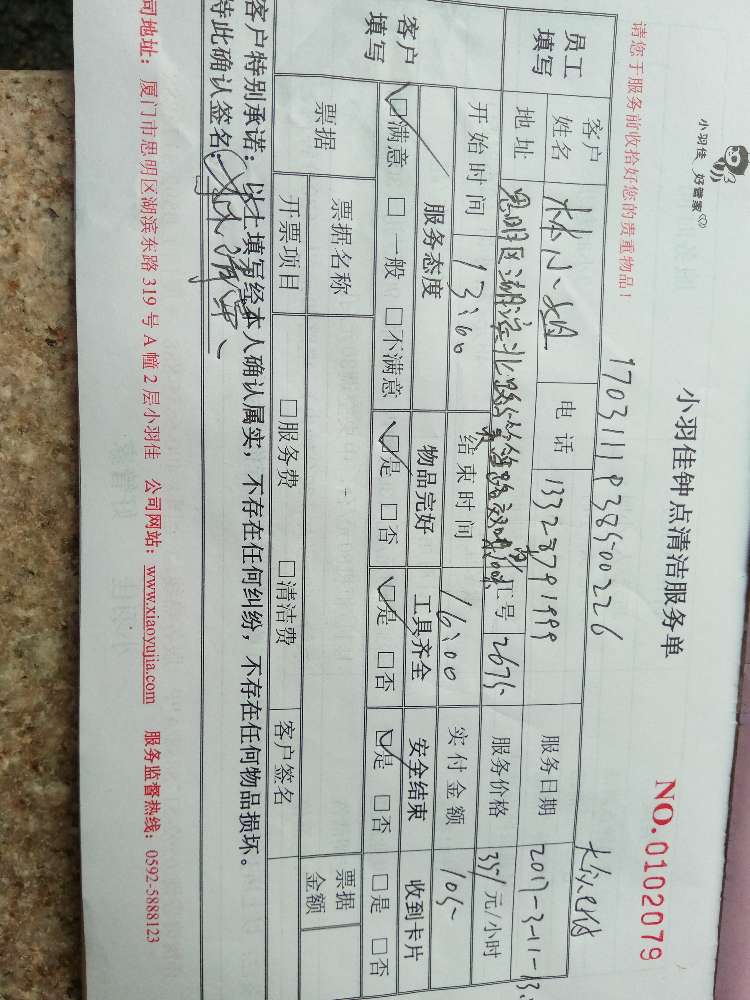 小羽佳 好管家
小羽佳钟点清洁服务单
NO.0102079
请您于服务前收拾好您的贵重物品！
员工填写
客户姓名 林小姐 电话 13328791999 服务日期 2017-3-11-13:
地址 思明区湖滨北路 工号 2675 服务价格 35/元/小时
开始时间 13:00 结束时间 16:00 实付金额 105
客户填写
服务态度 物品完好 工具齐全 安全结束 收到卡片
☑满意 □一般 □不满意 ☑是 □否 ☑是 □否 ☑是 □否 □是 □否
票据 票据名称 票据金额
开票项目 □服务费 □清洁费 客户签名
客户特别承诺：以上填写经本人确认属实，不存在任何纠纷，不存在任何物品损坏。
特此确认签名：
司地址： 厦门市思明区湖滨东路 319 号 A 幢 2 层小羽佳 公司网站：www.xiaoyujia.com 服务监督热线：0592-5888123